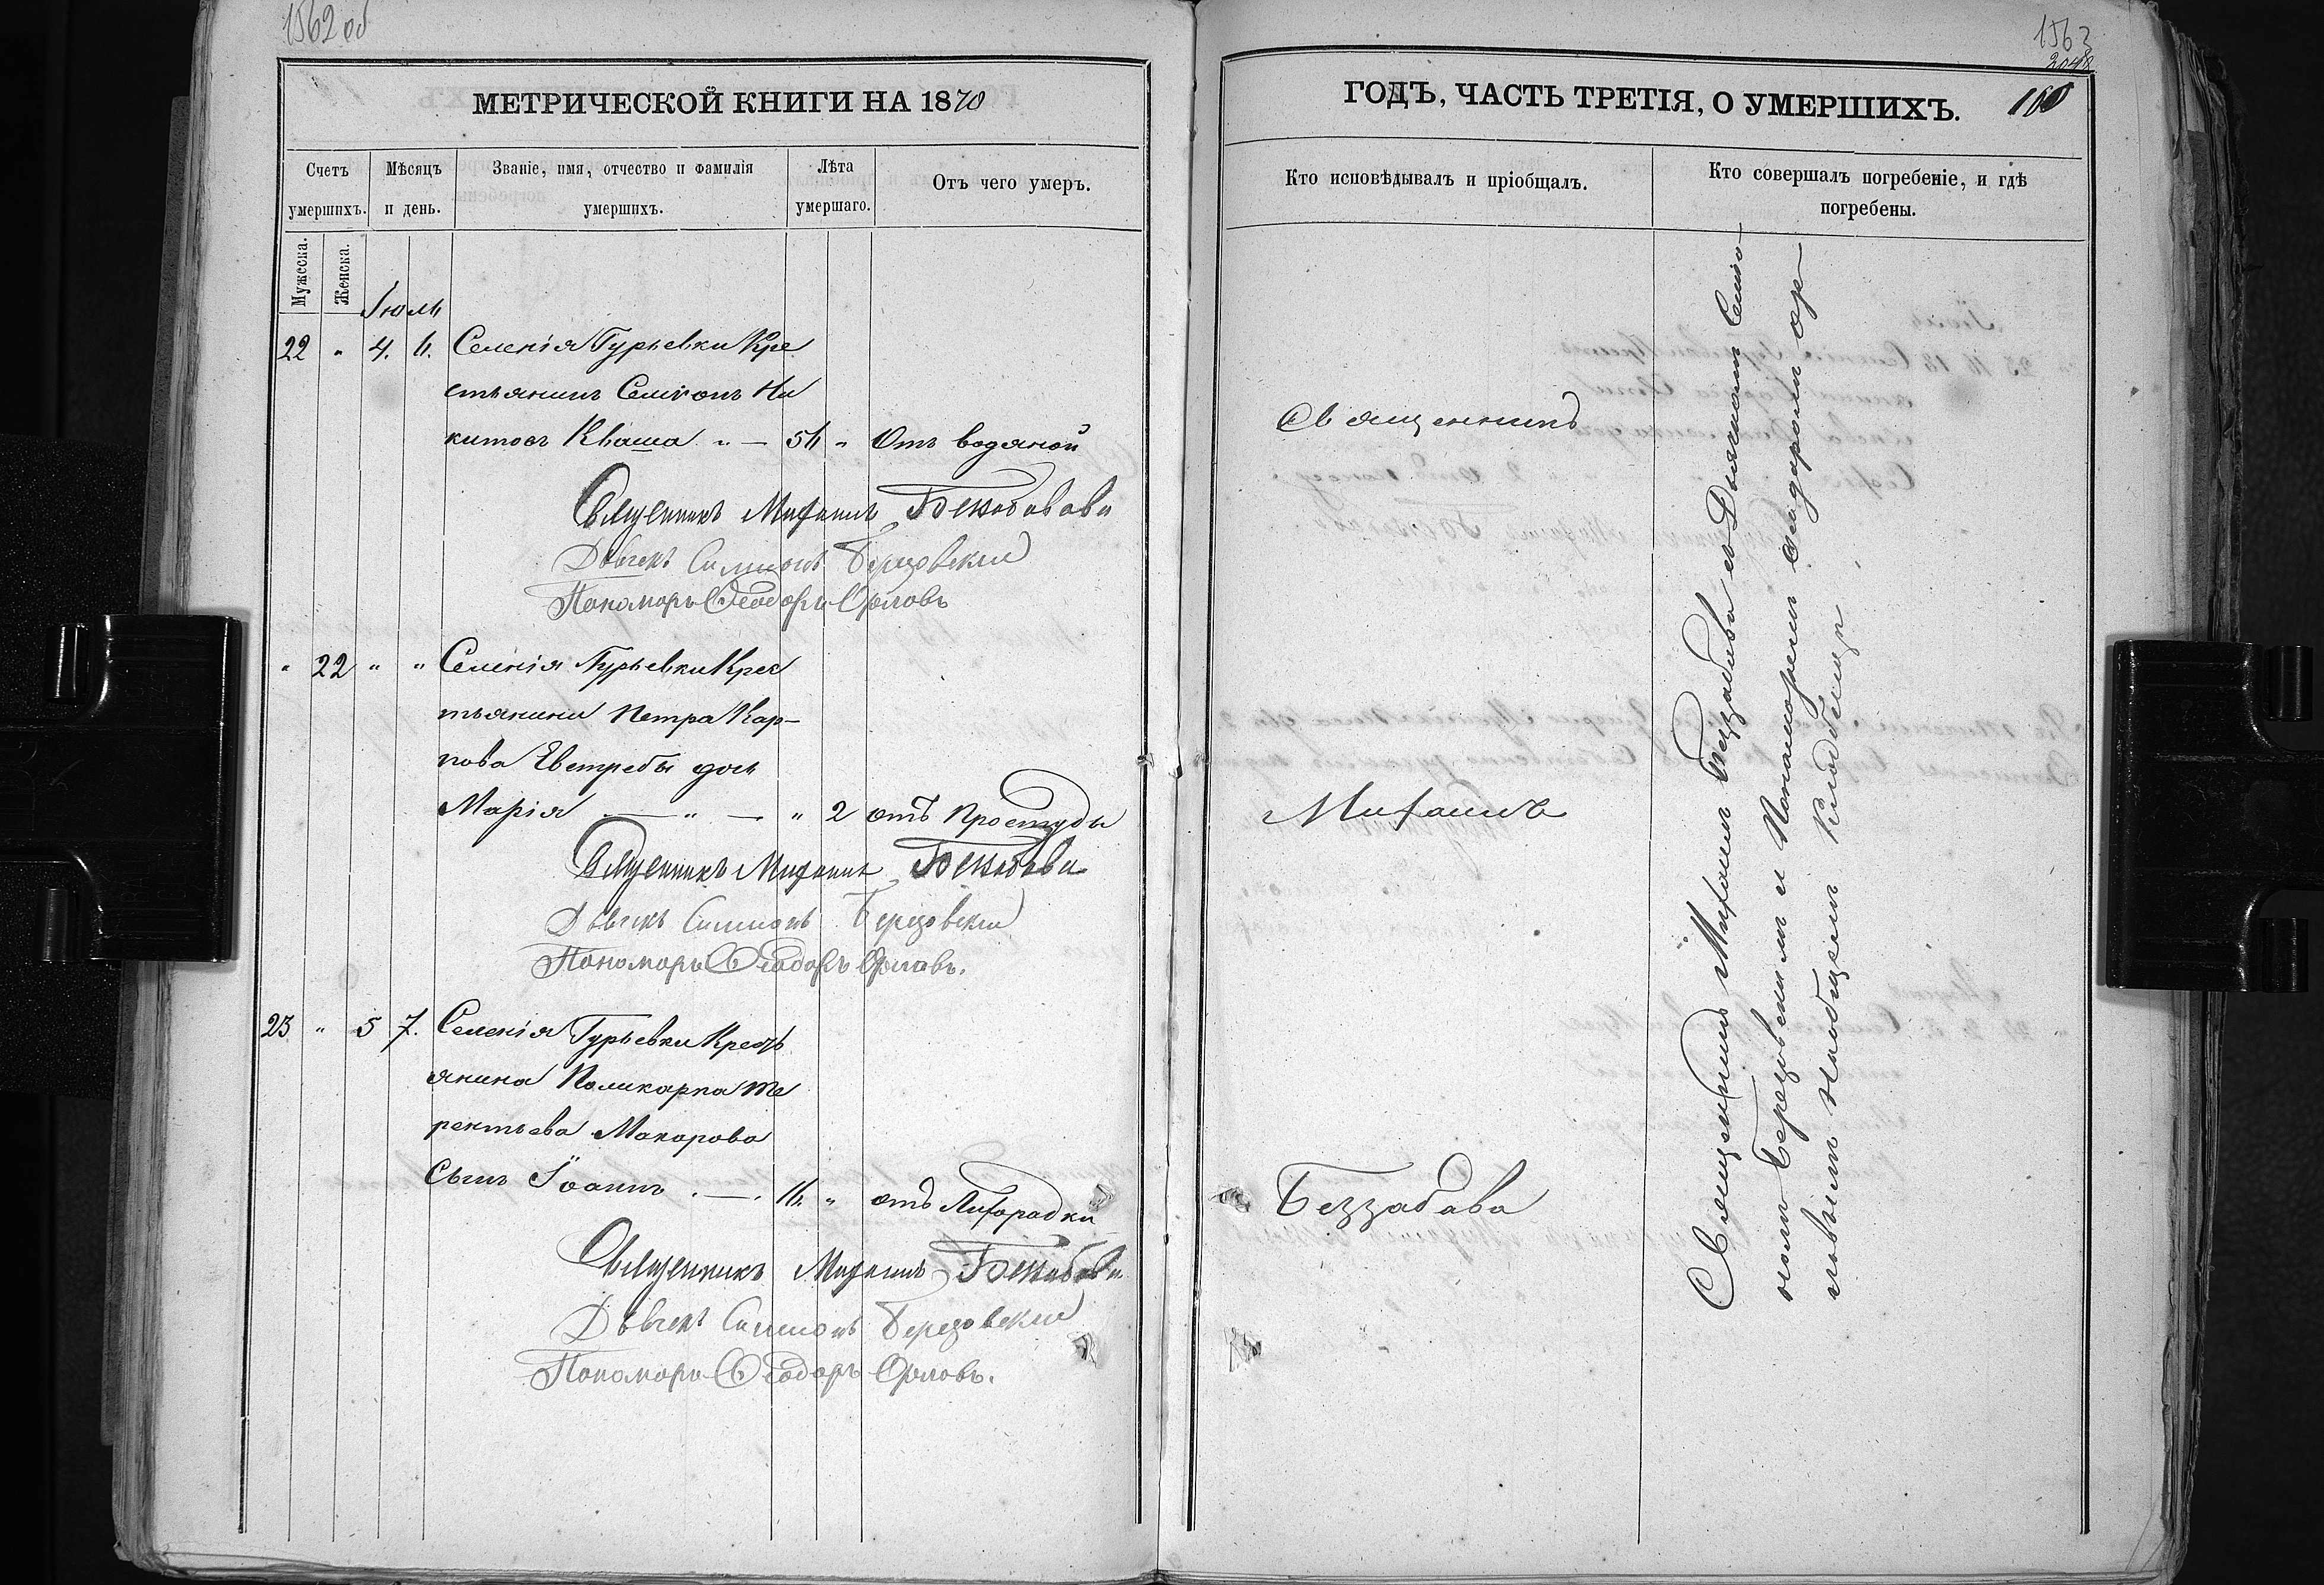 1562 об
МЕТРИЧЕСКОЙ КНИГИ НА 1870
Счетъ умершихъ.
Мѣсяцъ и день.
Званіе, имя, отчество и фамилія умершихъ.
Лѣта умершаго.
Отъ чего умеръ.
Мужеска.
Женска.
Іюль
22 " 4. 6. Селенія Гурьевки Кре
стьянинъ Симеонъ Ни
китовъ Кваша " — 56 " Отъ водяной
Священникъ Михаилъ Беззабава
Дьячекъ Симеонъ Березовскій
Пономарь Ѳеодоръ Орловъ
" 22 " " Селенія Гурьевки Крес
тьянина Петра Кар-
пова Евтребы дочь
Марія — " — " 2 отъ Простуды
Священникъ Михаилъ Беззабава
Дьячекъ Симеонъ Березовскій
Пономарь Ѳеодоръ Орловъ.
23 " 5 7. Селенія Гурьевки Кресть
янина Поликарпа Те
рентьева Макарова
Сынъ Іоаннъ . — . 16. " отъ Лихорадки
Священникъ Михаилъ Беззабава
Дьячекъ Симеонъ Березовскій
Пономарь Ѳеодоръ Орловъ.
1563
2048
ГОДЪ, ЧАСТЬ ТРЕТІЯ, О УМЕРШИХЪ.
Кто исповѣдывалъ и пріобщалъ.
Кто совершалъ погребеніе, и гдѣ погребены.
Священникъ
Михаилъ
Беззабава
Священникъ Михаилъ Беззабава съ Дьячкомъ Симео
номъ Березовскимъ и Пономаремъ Ѳеодоромъ Ор
ловымъ на общемъ Кладбищѣ